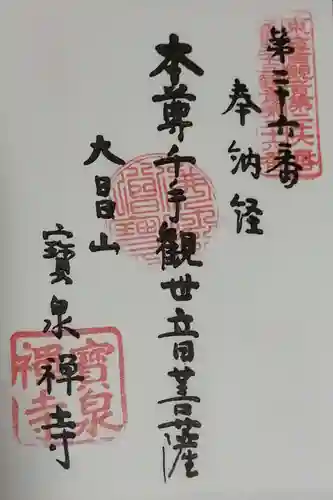 第二十六番
奉納経
本尊千手観世音菩薩
大昌山
寶泉禅寺
寶泉
禅寺